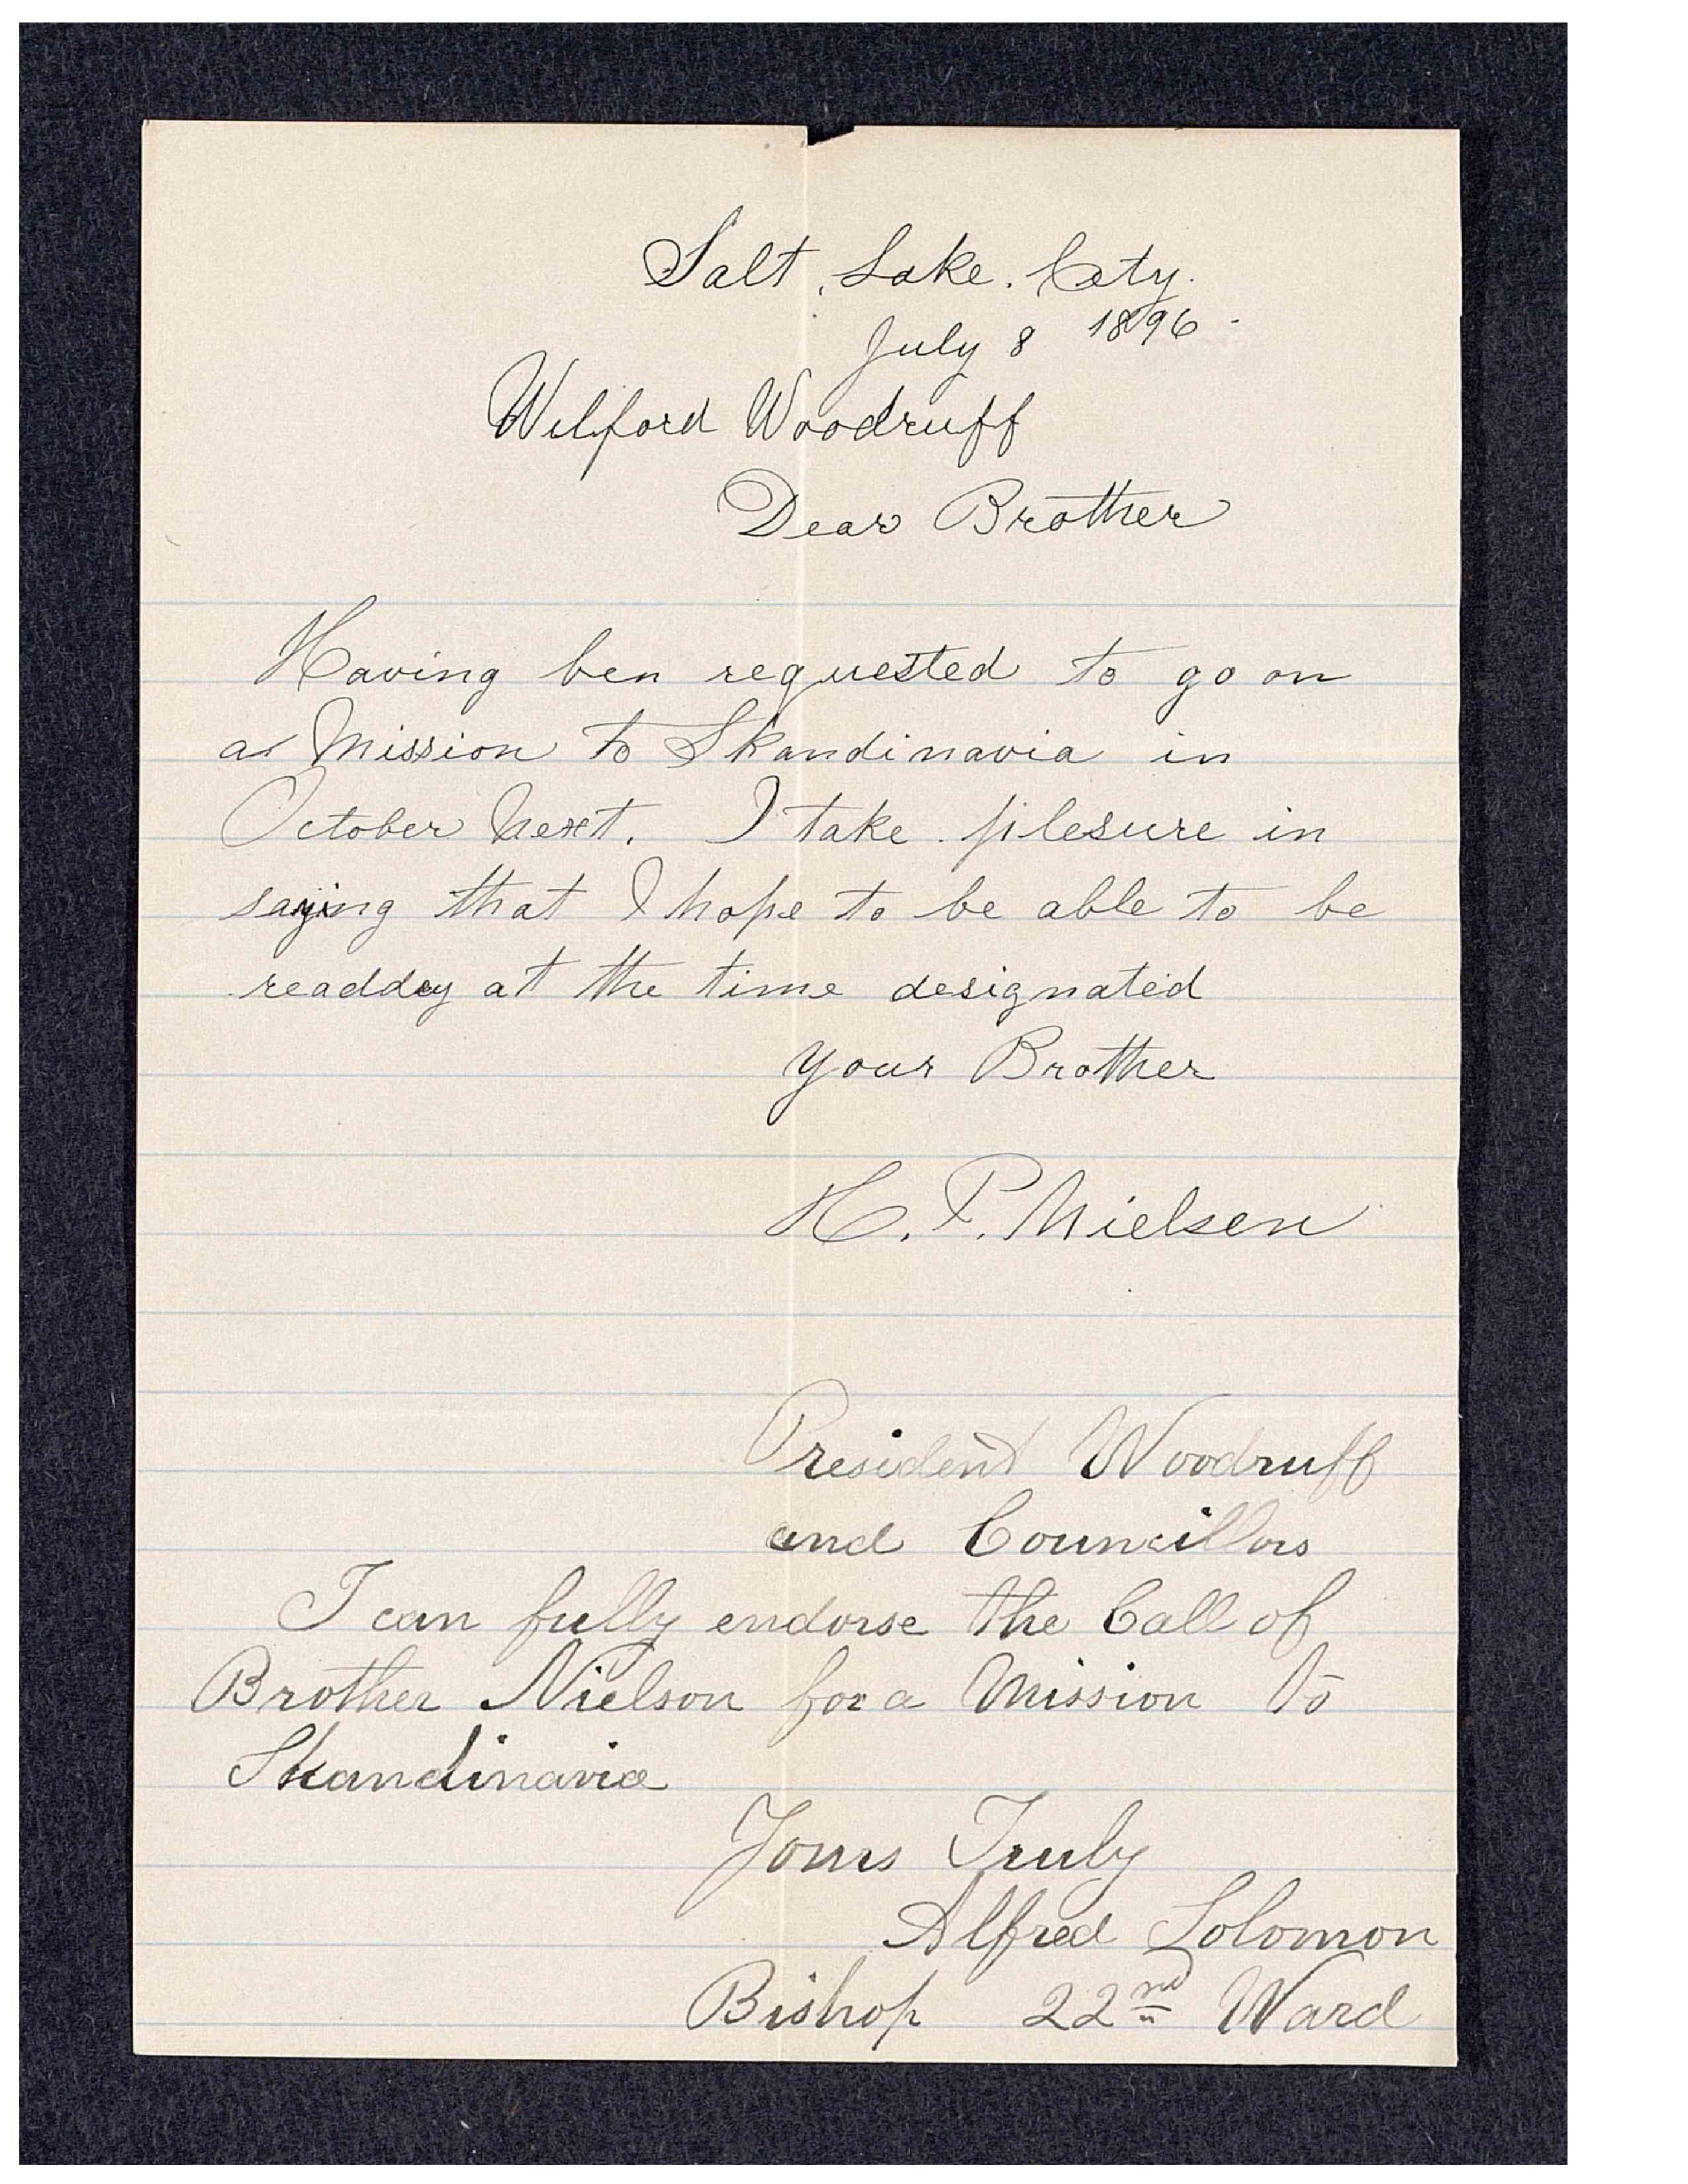 Salt. Lake. City.
July 8 1896-
Wilford Woodruff
Dear Brother
Having ben requested to go on
a Mission to Skandinavia in
October Next. I take plesure in
saying that I hope to be able to be
readdy at the time designated
your Brother
H. P. Nielsen
President Woodruff
and Councillors
I can fully endorse the Call of
Brother Nielson for a Mission to
Skandinavia
Yours Truly
Alfred Solomon
Bishop 22nd Ward